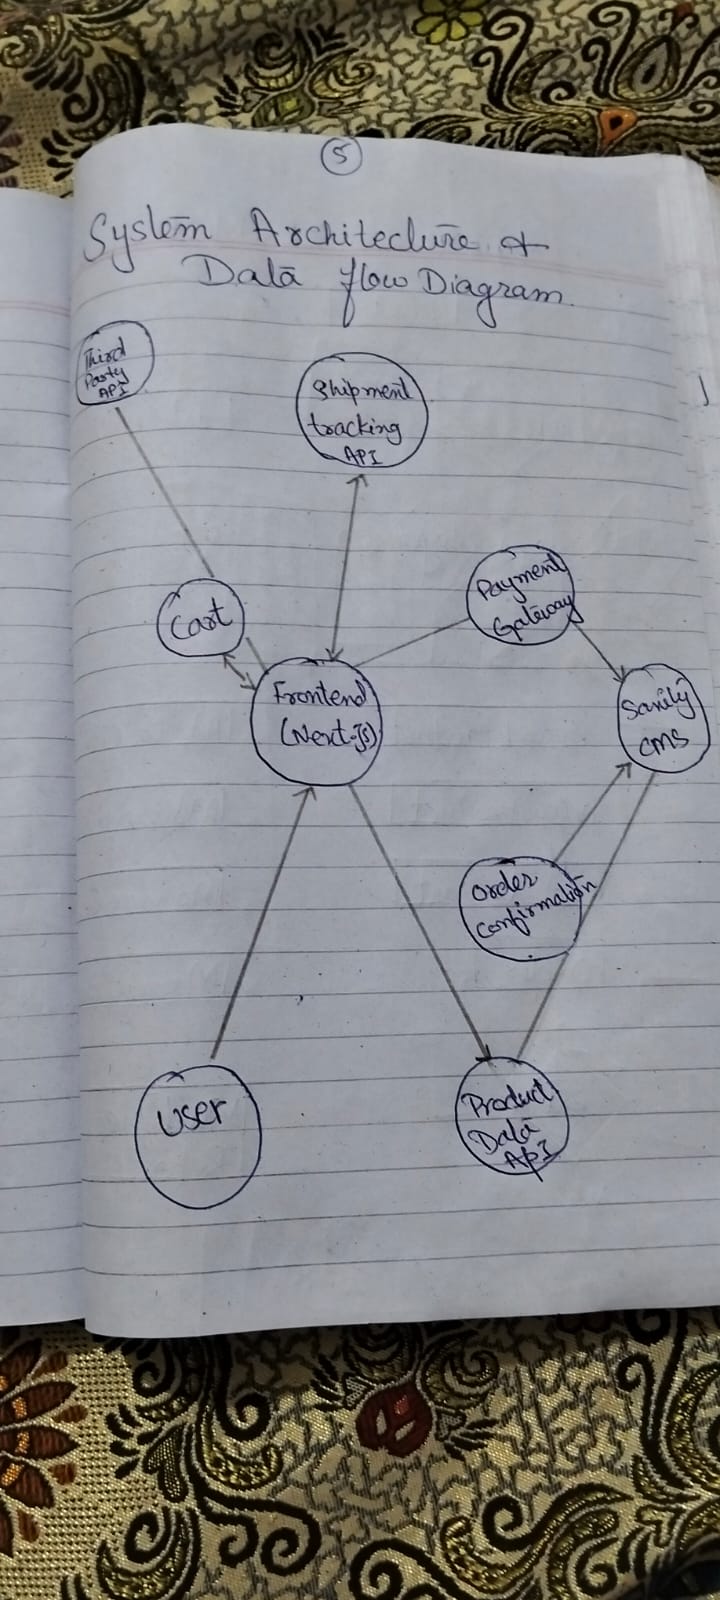 5
System Architecture &
Data flow Diagram.
Third
Party
API
Shipment
tracking
API
Payment
Gateway
Cart
Frontend
(Next-Js)
Sanity
CMS
Order
Confirmation
User
Product
Data
API